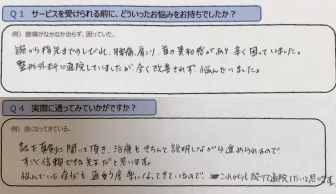 Q1 サービスを受けられる前に、どういったお悩みをお持ちでしたか?
例）腰痛がなかなか治らず、困っていた。
腕から指先までのしびれ、腰痛、肩こり、首の違和感があり、長く困っていました。
整形外科に通院していましたが全く改善されず、悩んでいました。
Q4 実際に通ってみていかがですか?
例）良くなってきている。
話を真剣に聞いて頂き、治療もきちんと説明しながら進められるので
すごく信頼できる先生だと思います。
悩んでいる症状も 楽になってきているので、これからも続けて通院したいと思います。